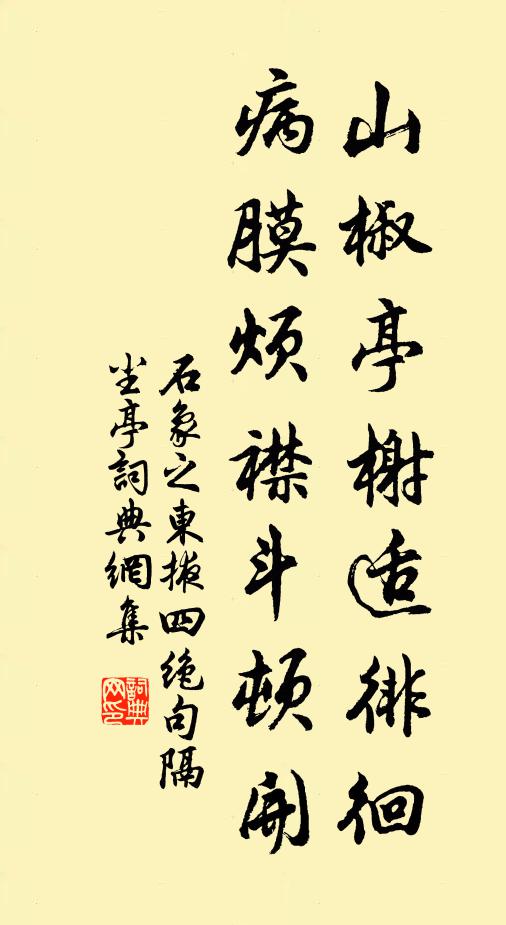 山椒亭榭适徘徊
病膜烦襟斗顿開
石象之東掖四绝句隔
尘亭詞典網集
詞典
网印